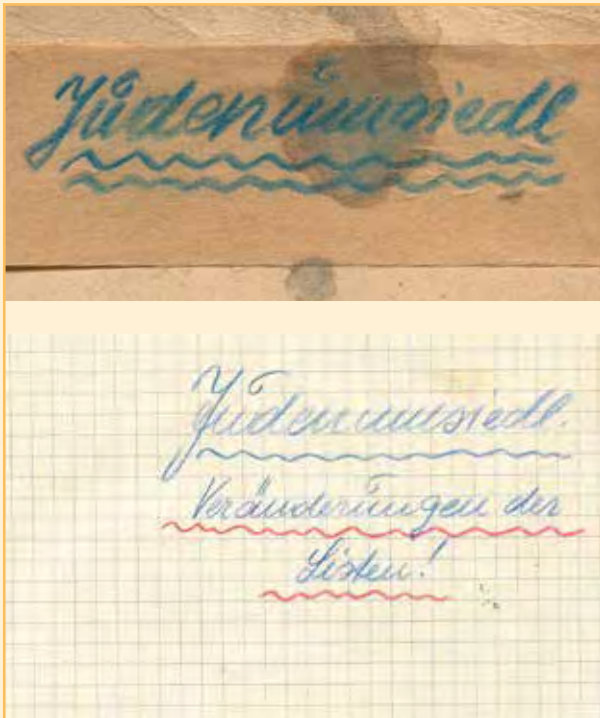 Judenumsiedl
Judenumsiedl.
Veränderungen der
Listen!